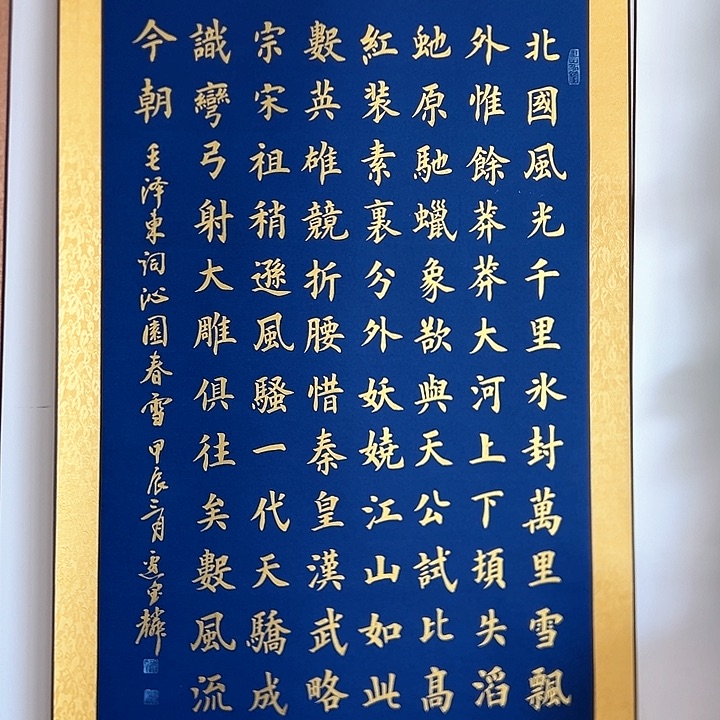 北國風光千里氷封萬里雪飄
外惟餘莽莽大河上下頓失滔
虵原馳蠟象欲與天公試比高
紅装素裏分外妖嬈江山如此
數英雄競折腰惜秦皇漢武略
宗宋祖稍遜風騷一代天驕成
識彎弓射大雕俱往矣數風流
今朝
毛泽東词沁園春雪甲辰三月